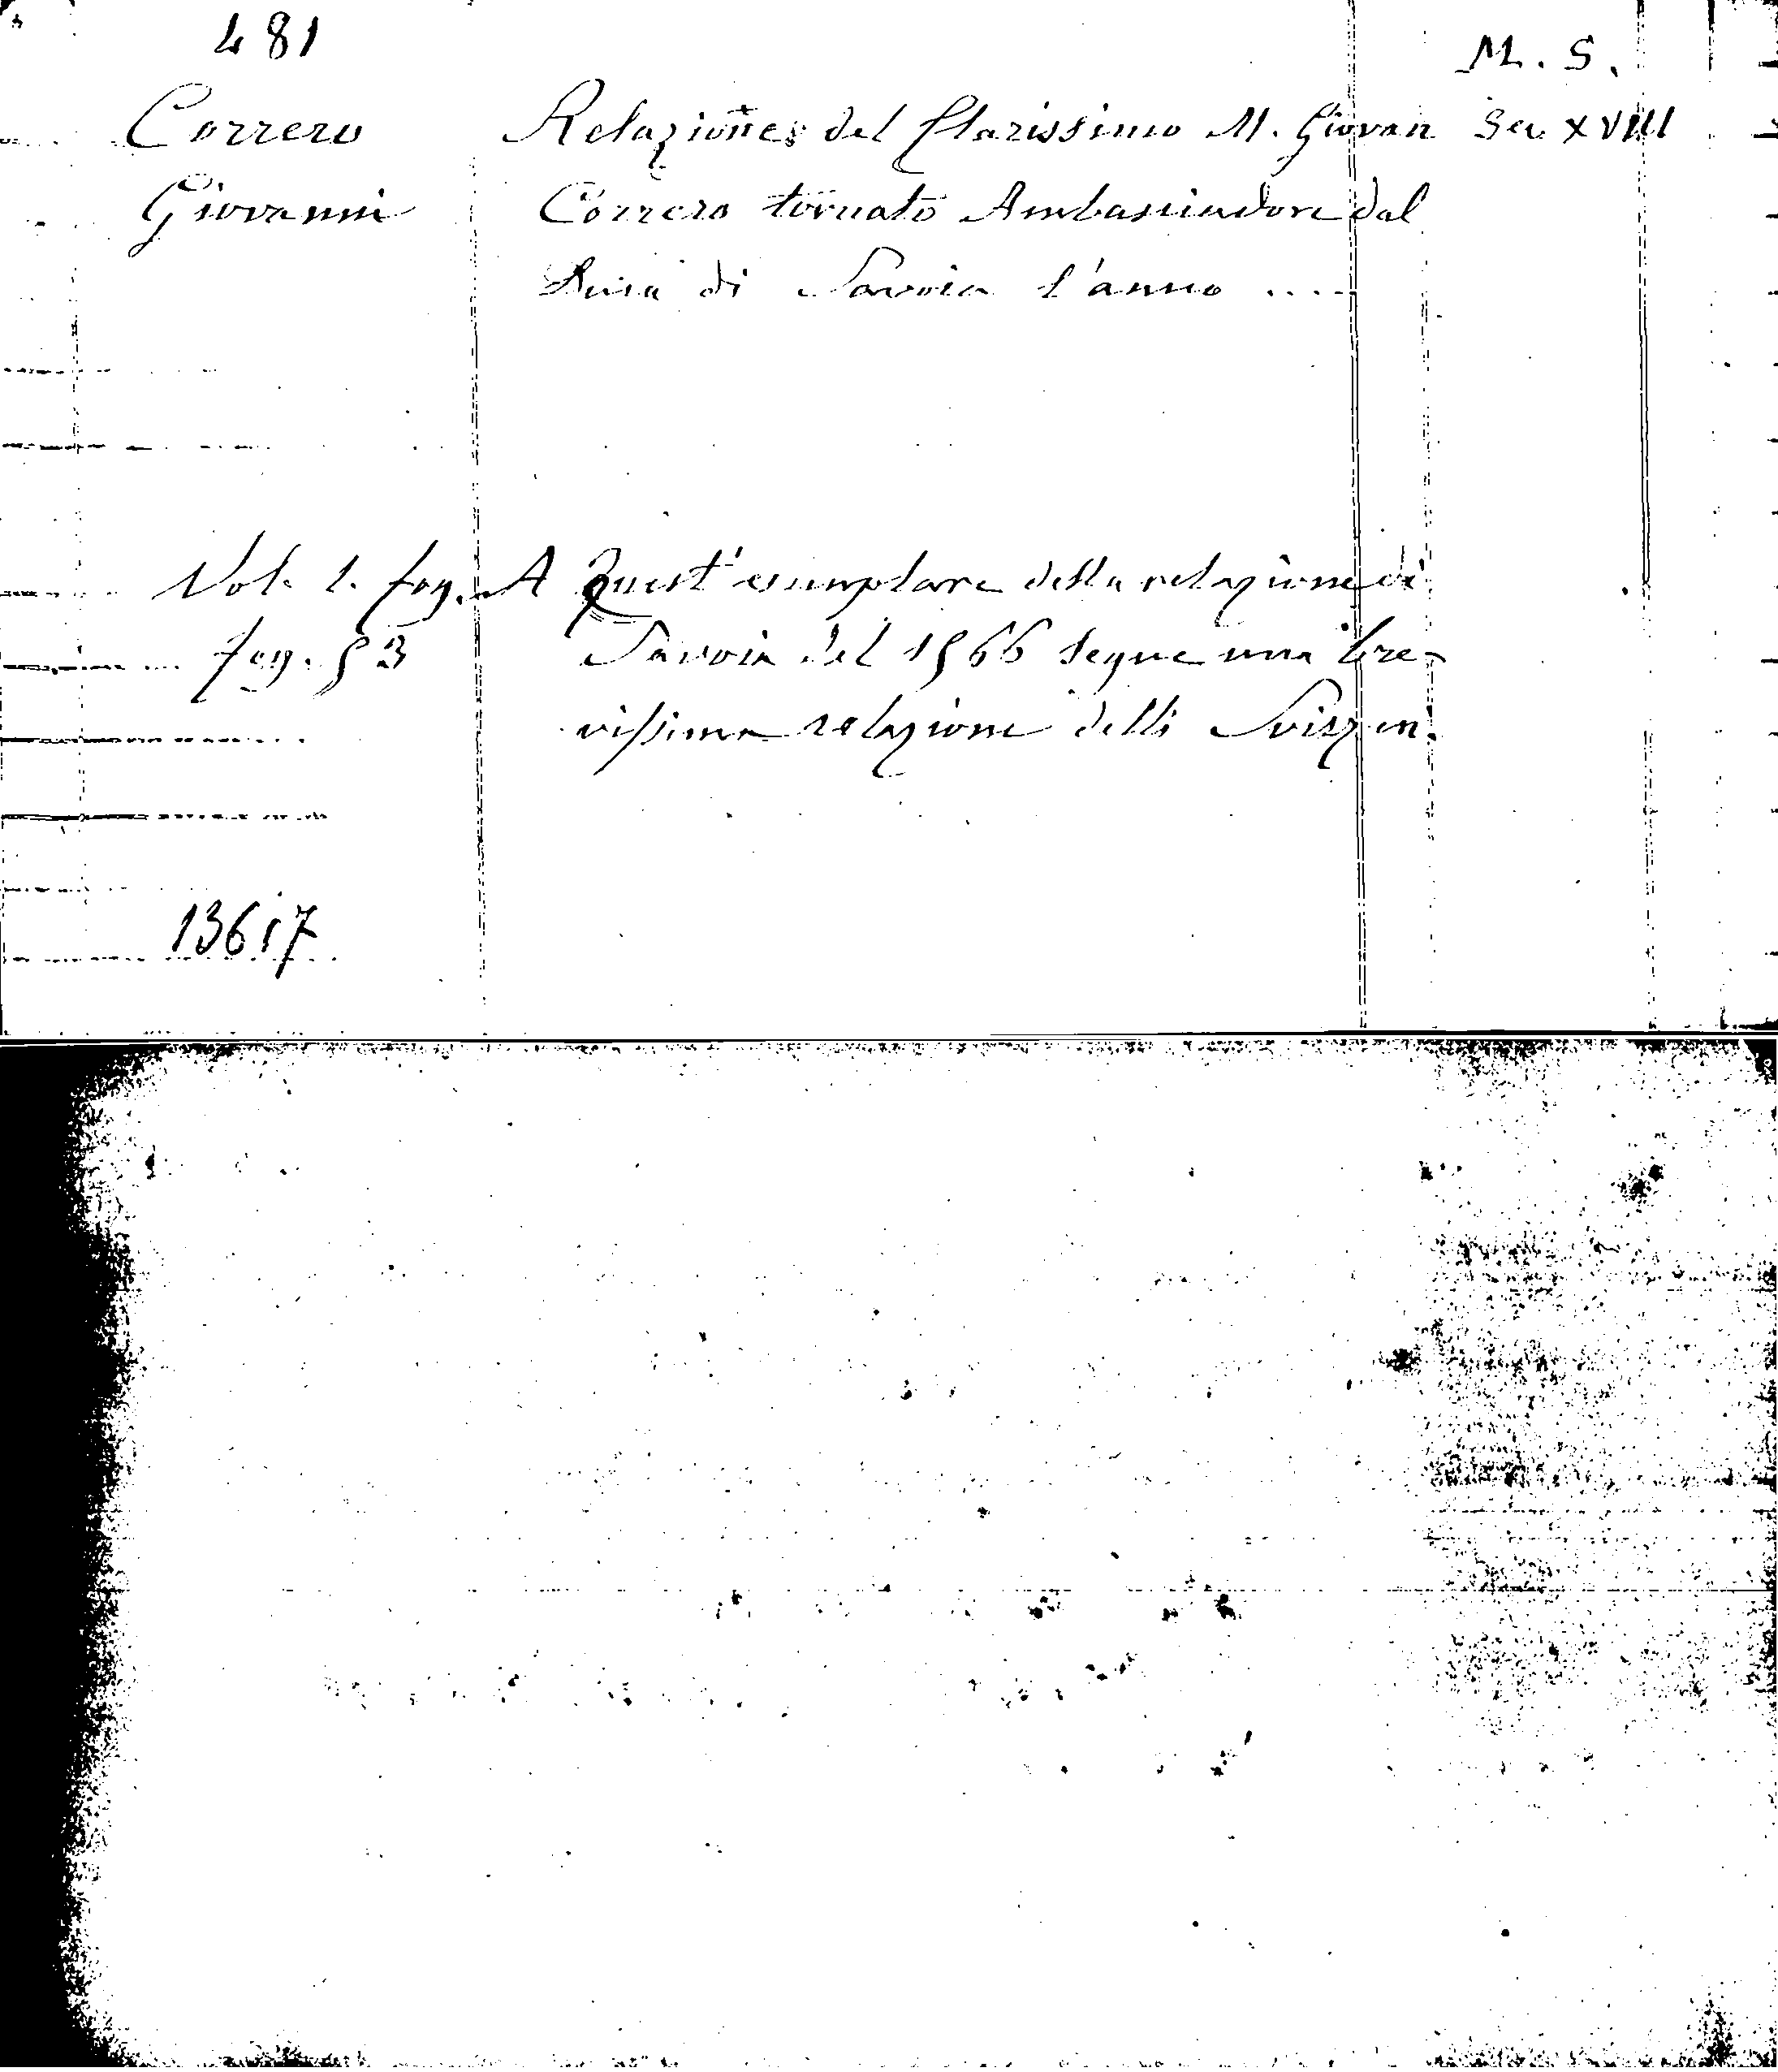 481
M. S.
Correro Relazione del Clarissimo M. Giovan Sec XVIII
Giovanni Correro tornato Ambasciadore dal
Duca di Savoia l'anno ....
Vol. 1. fog. A Quest' esemplare della relazione di
fog. 53 Savoia del 1566 segue una bre-
vissima relazione delli Svizzeri.
13617